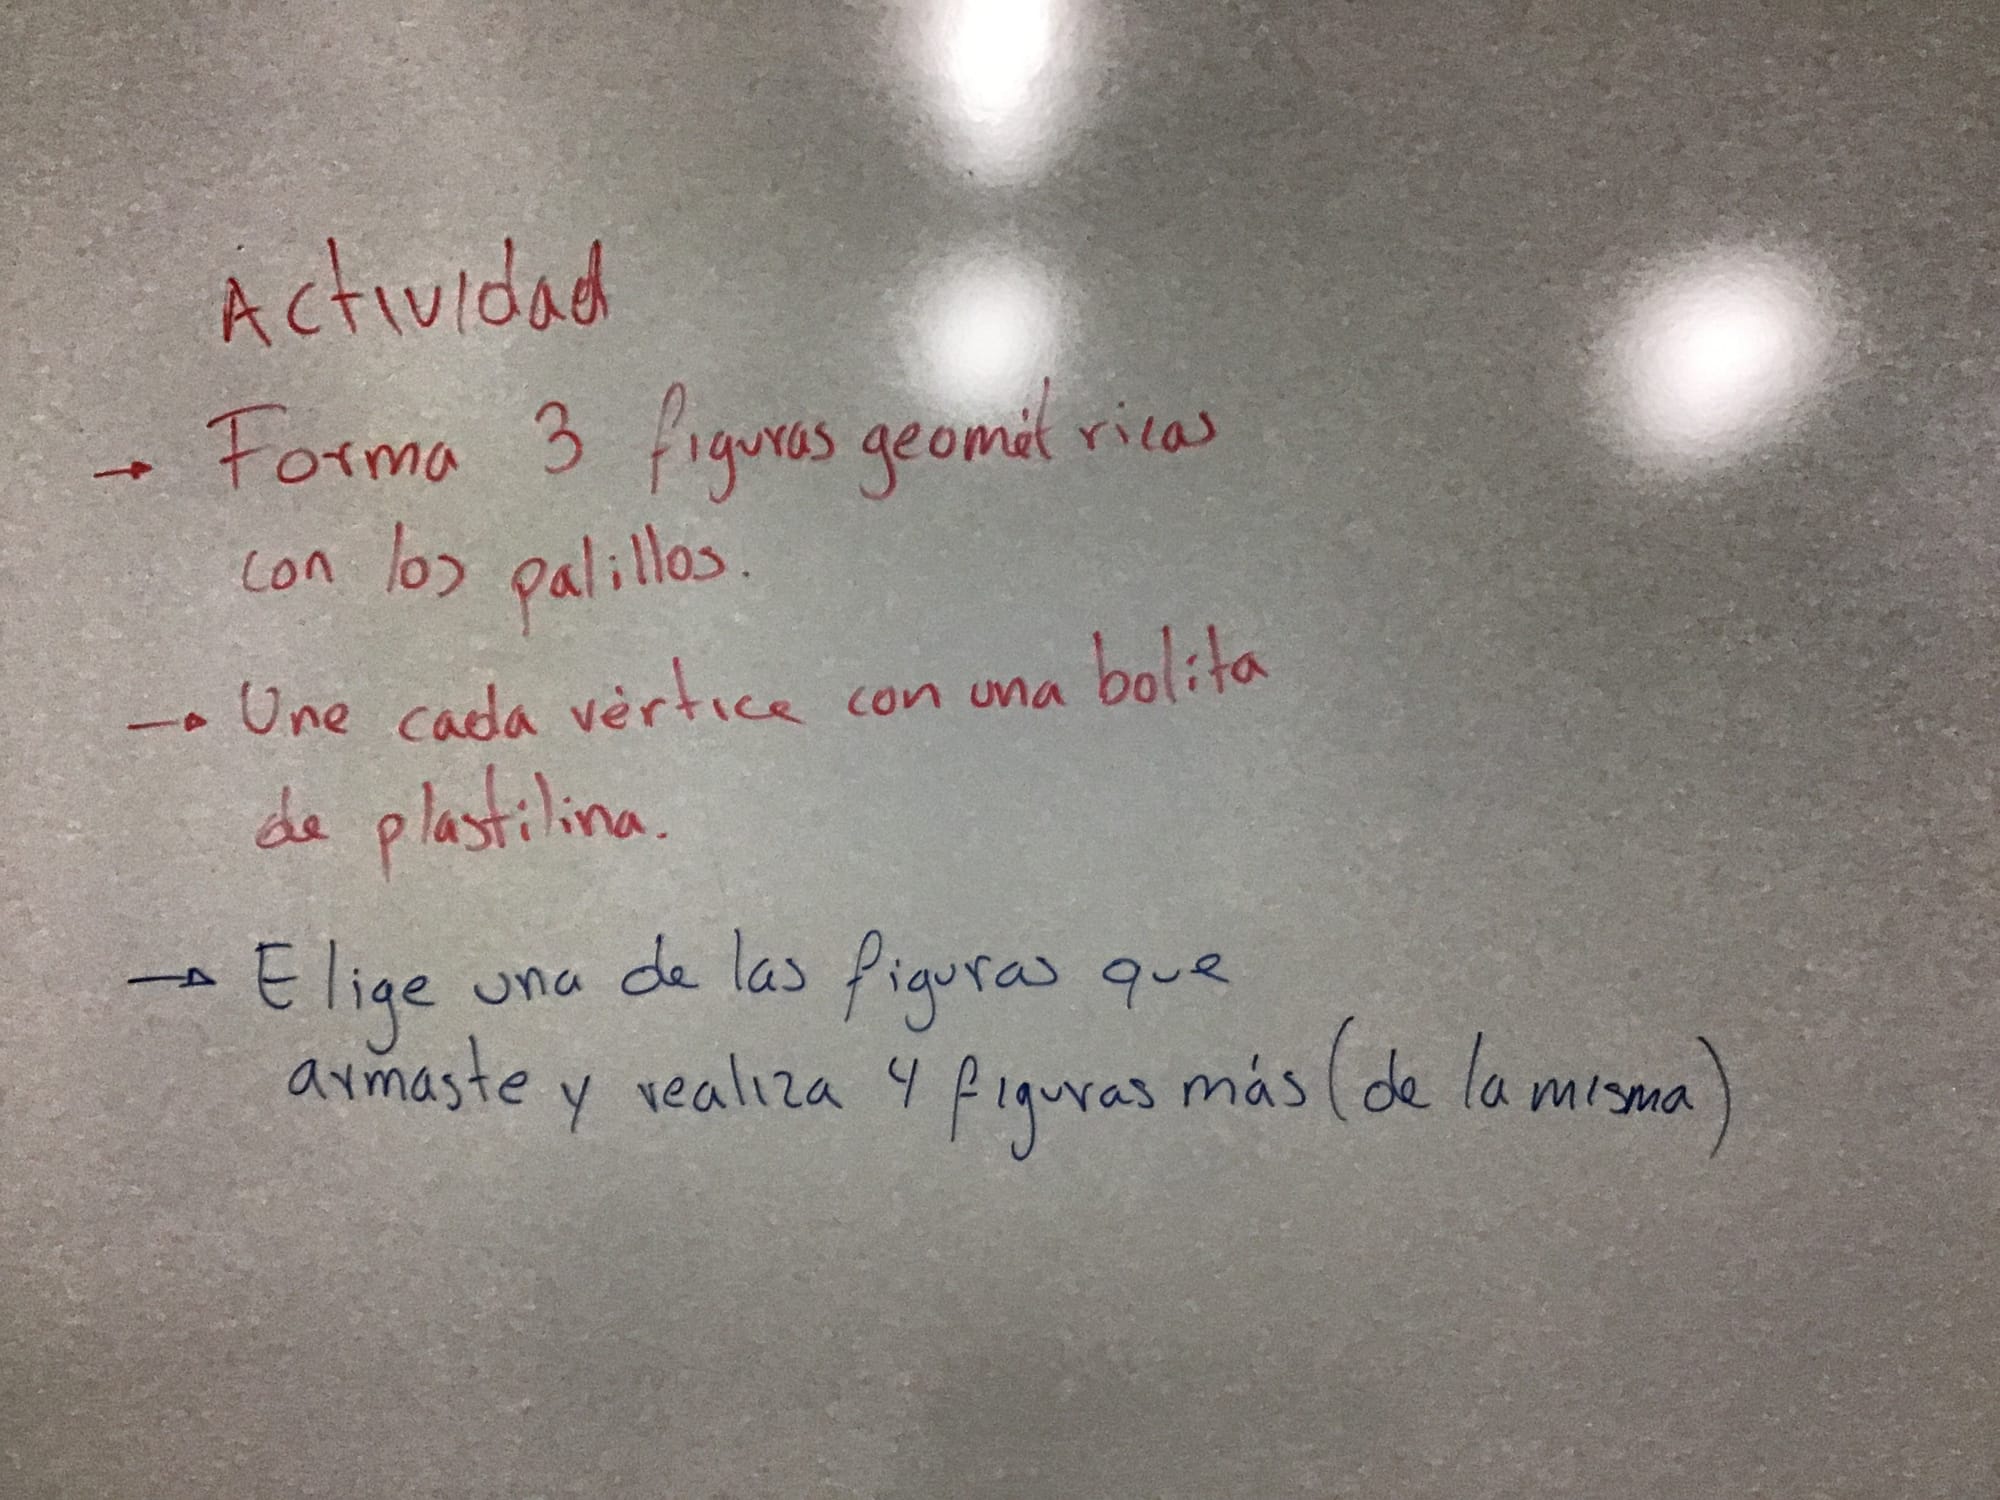 Actividad
→ Forma 3 figuras geométricas
con los palillos.
→ Une cada vértice con una bolita
de plastilina.
→ Elige una de las figuras que
armaste y realiza 4 figuras más (de la misma)